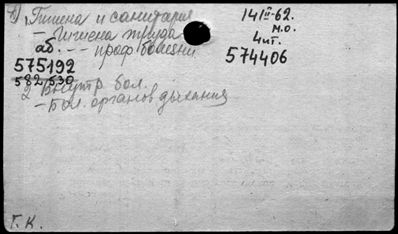 1) Гигиена и санитария 14/II-62.
– Гигиена труда м.о.
аб. -- – проф болезни 4шт.
575192 574406
582530
2 Внутр бол.
– Бол. органов дыхания
Г. К.